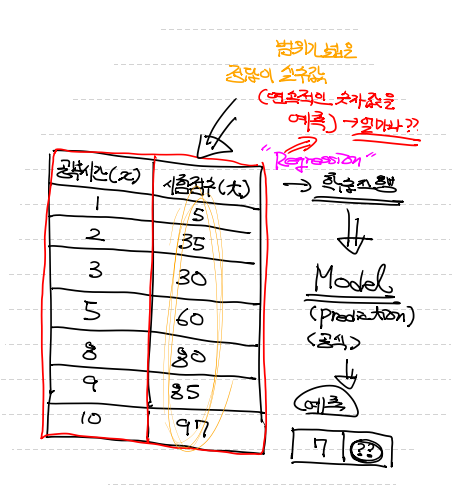 범위가 넓은
정답이 실수값
(연속적인 숫자값을
예측) → 얼마나??
"Regression"
공부시간(x) 시험점수(t)
→ 학습진행
1 5
2 35
3 30
5 60
8 80
9 85
10 97
Model
(prediction)
(공식)
예측
7 ??